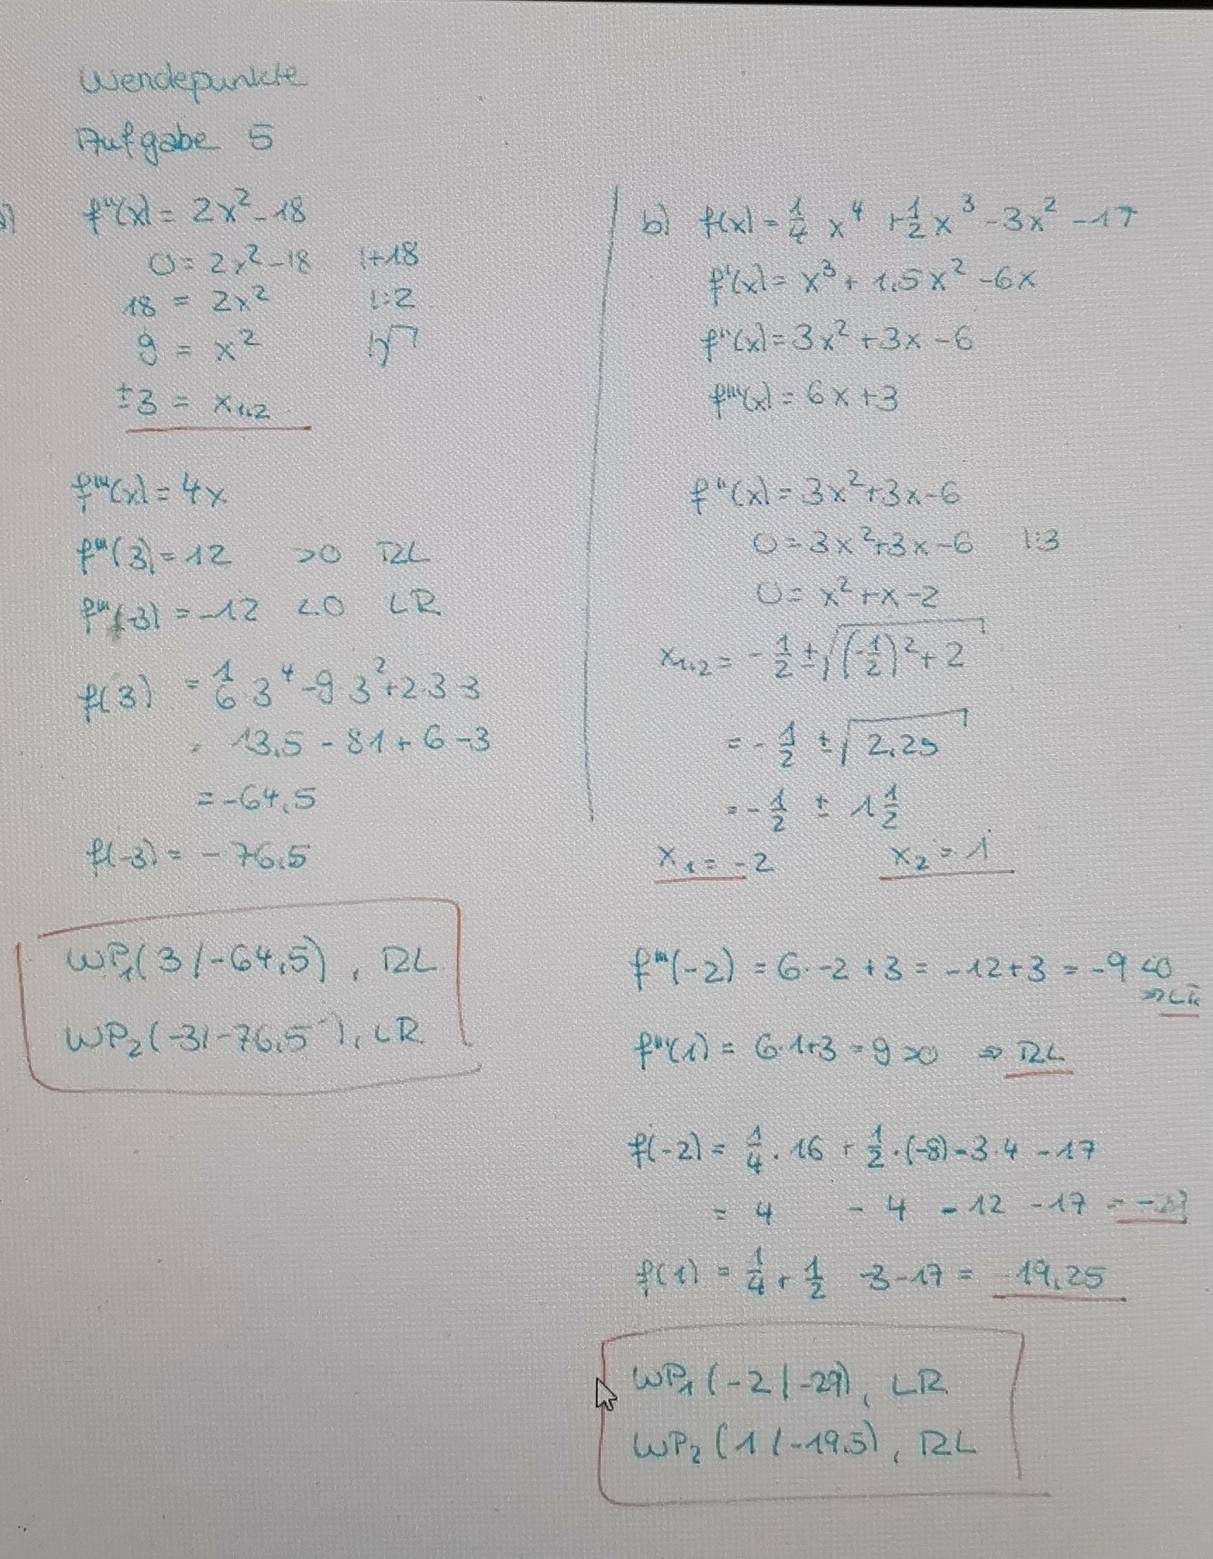 Wendepunkte
Aufgabe 5
a) f''(x) = 2x² - 18
0 = 2x² - 18 |+18
18 = 2x² |:2
9 = x² |√
±3 = x₁,₂
f'''(x) = 4x
f'''(3) = 12 >0 RL
f'''(-3) = -12 <0 LR
f(3) = 1/6 · 3⁴ - 9 · 3² + 2·3 - 3
= 13,5 - 81 + 6 - 3
= -64,5
f(-3) = -76,5
WP₁(3/-64,5), RL
WP₂(-3/-76,5), LR
b) f(x) = 1/4 x⁴ + 1/2 x³ - 3x² - 17
f'(x) = x³ + 1,5x² - 6x
f''(x) = 3x² + 3x - 6
f'''(x) = 6x + 3
f''(x) = 3x² + 3x - 6
0 = 3x² + 3x - 6 |:3
0 = x² + x - 2
x₁,₂ = - 1/2 ± √((-1/2)² + 2)
= - 1/2 ± √2,25
= - 1/2 ± 1 1/2
x₁ = -2 x₂ = 1
f'''(-2) = 6·-2 + 3 = -12 + 3 = -9 <0
⇒ LR
f'''(1) = 6·1+3 = 9 >0 ⇒ RL
f(-2) = 1/4 · 16 + 1/2 · (-8) - 3·4 - 17
= 4 - 4 - 12 - 17 = -29
f(1) = 1/4 + 1/2 - 3 - 17 = -19,25
WP₁ (-2 | -29), LR
WP₂ (1 / -19,5), RL